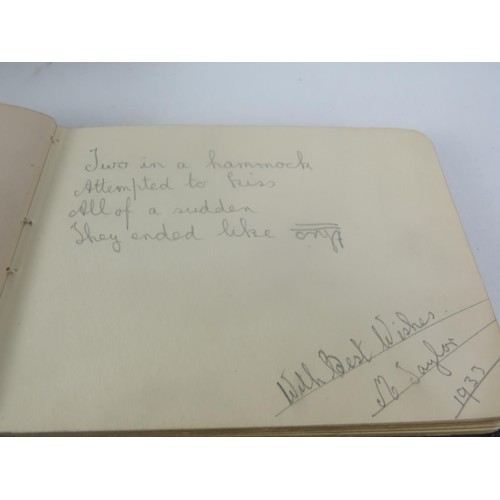 Two in a hammock
Attempted to kiss
All of a sudden
They ended like this
With Best Wishes.
M Taylor
1933